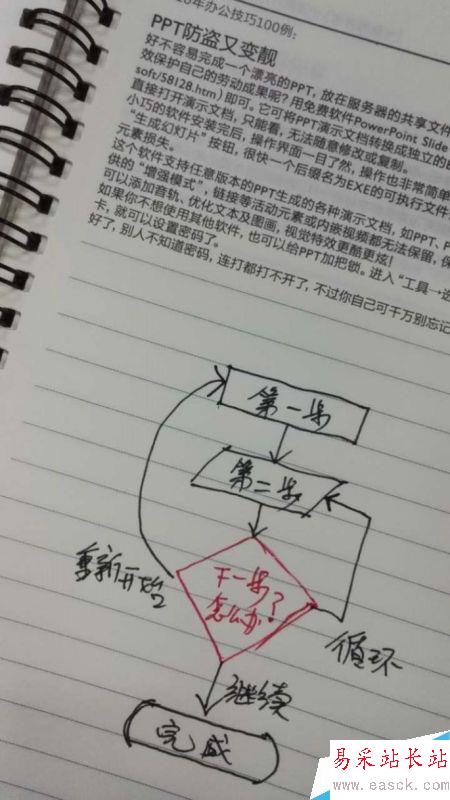 年办公技巧100例：
PPT防盗又变靓
好不容易完成一个漂亮的PPT，放在服务器的共享文件
效保护自己的劳动成果呢？用免费软件PowerPoint Slide
soft/58128.htm）即可。它可将PPT演示文档转换成独立的
直接打开演示文档，只能看，无法随意修改或复制。
小巧的软件安装完后，操作界面一目了然，操作也非常简单
“生成幻灯片”按钮，很快一个后缀名为EXE的可执行文件
元素损失。
这个软件支持任意版本的PPT生成的各种演示文档，如PPT、P
供的“增强模式”，链接等活动元素或内嵌视频都无法保留，保
可以添加音轨、优化文本及图画，视觉特效更酷更炫！
如果你不想使用其他软件，也可以给PPT加把锁。进入“工具→选
卡，就可以设置密码了。
好了，别人不知道密码，连打都打不开了，不过你自己可千万别忘记
第一步
第二步
重新开始
下一步
怎么办？
循环
继续
完成
易采站长站
www.easck.com